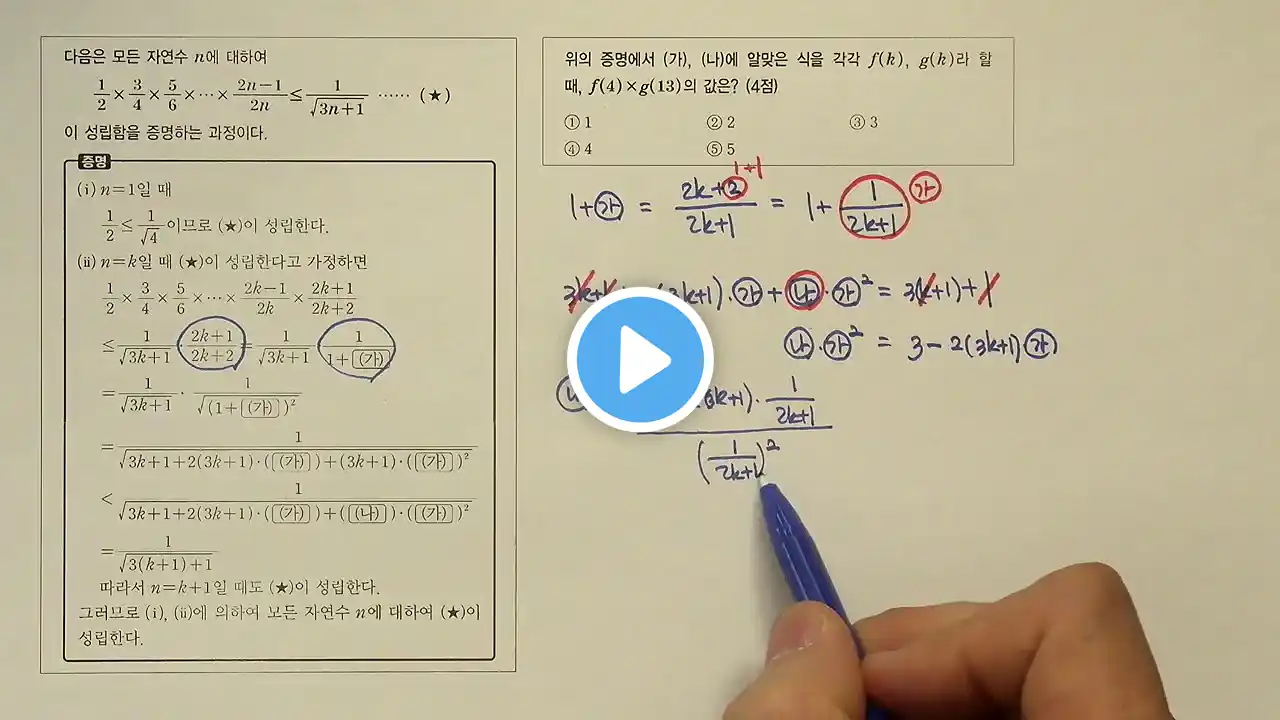 다음은 모든 자연수 n에 대하여
1/2 × 3/4 × 5/6 × ⋯ × (2n−1)/2n ≤ 1/√(3n+1) ⋯⋯ (★)
이 성립함을 증명하는 과정이다.
증명
(ⅰ) n=1일 때
1/2 ≤ 1/√4 이므로 (★)이 성립한다.
(ⅱ) n=k일 때 (★)이 성립한다고 가정하면
1/2 × 3/4 × 5/6 × ⋯ × (2k−1)/2k × (2k+1)/(2k+2)
≤ 1/√(3k+1) · (2k+1)/(2k+2) = 1/√(3k+1) · 1/(1+(가))
= 1/√(3k+1) · 1/√((1+(가))²)
= 1/√(3k+1+2(3k+1)·((가))+(3k+1)·((가))²)
< 1/√(3k+1+2(3k+1)·((가))+((나))·((가))²)
= 1/√(3(k+1)+1)
따라서 n=k+1일 때도 (★)이 성립한다.
그러므로 (ⅰ), (ⅱ)에 의하여 모든 자연수 n에 대하여 (★)이
성립한다.
위의 증명에서 (가), (나)에 알맞은 식을 각각 f(k), g(k)라 할
때, f(4)×g(13)의 값은? (4점)
① 1 ② 2 ③ 3
④ 4 ⑤ 5
1+1
1+가 = (2k+2)/(2k+1) = 1+ 1/(2k+1) 가
3k+1 (3k+1)·가 + 나·가² = 3(k+1)+1
나·가² = 3−2(3k+1)가
(3k+1)· 1/(2k+1)
(1/(2k+1))²